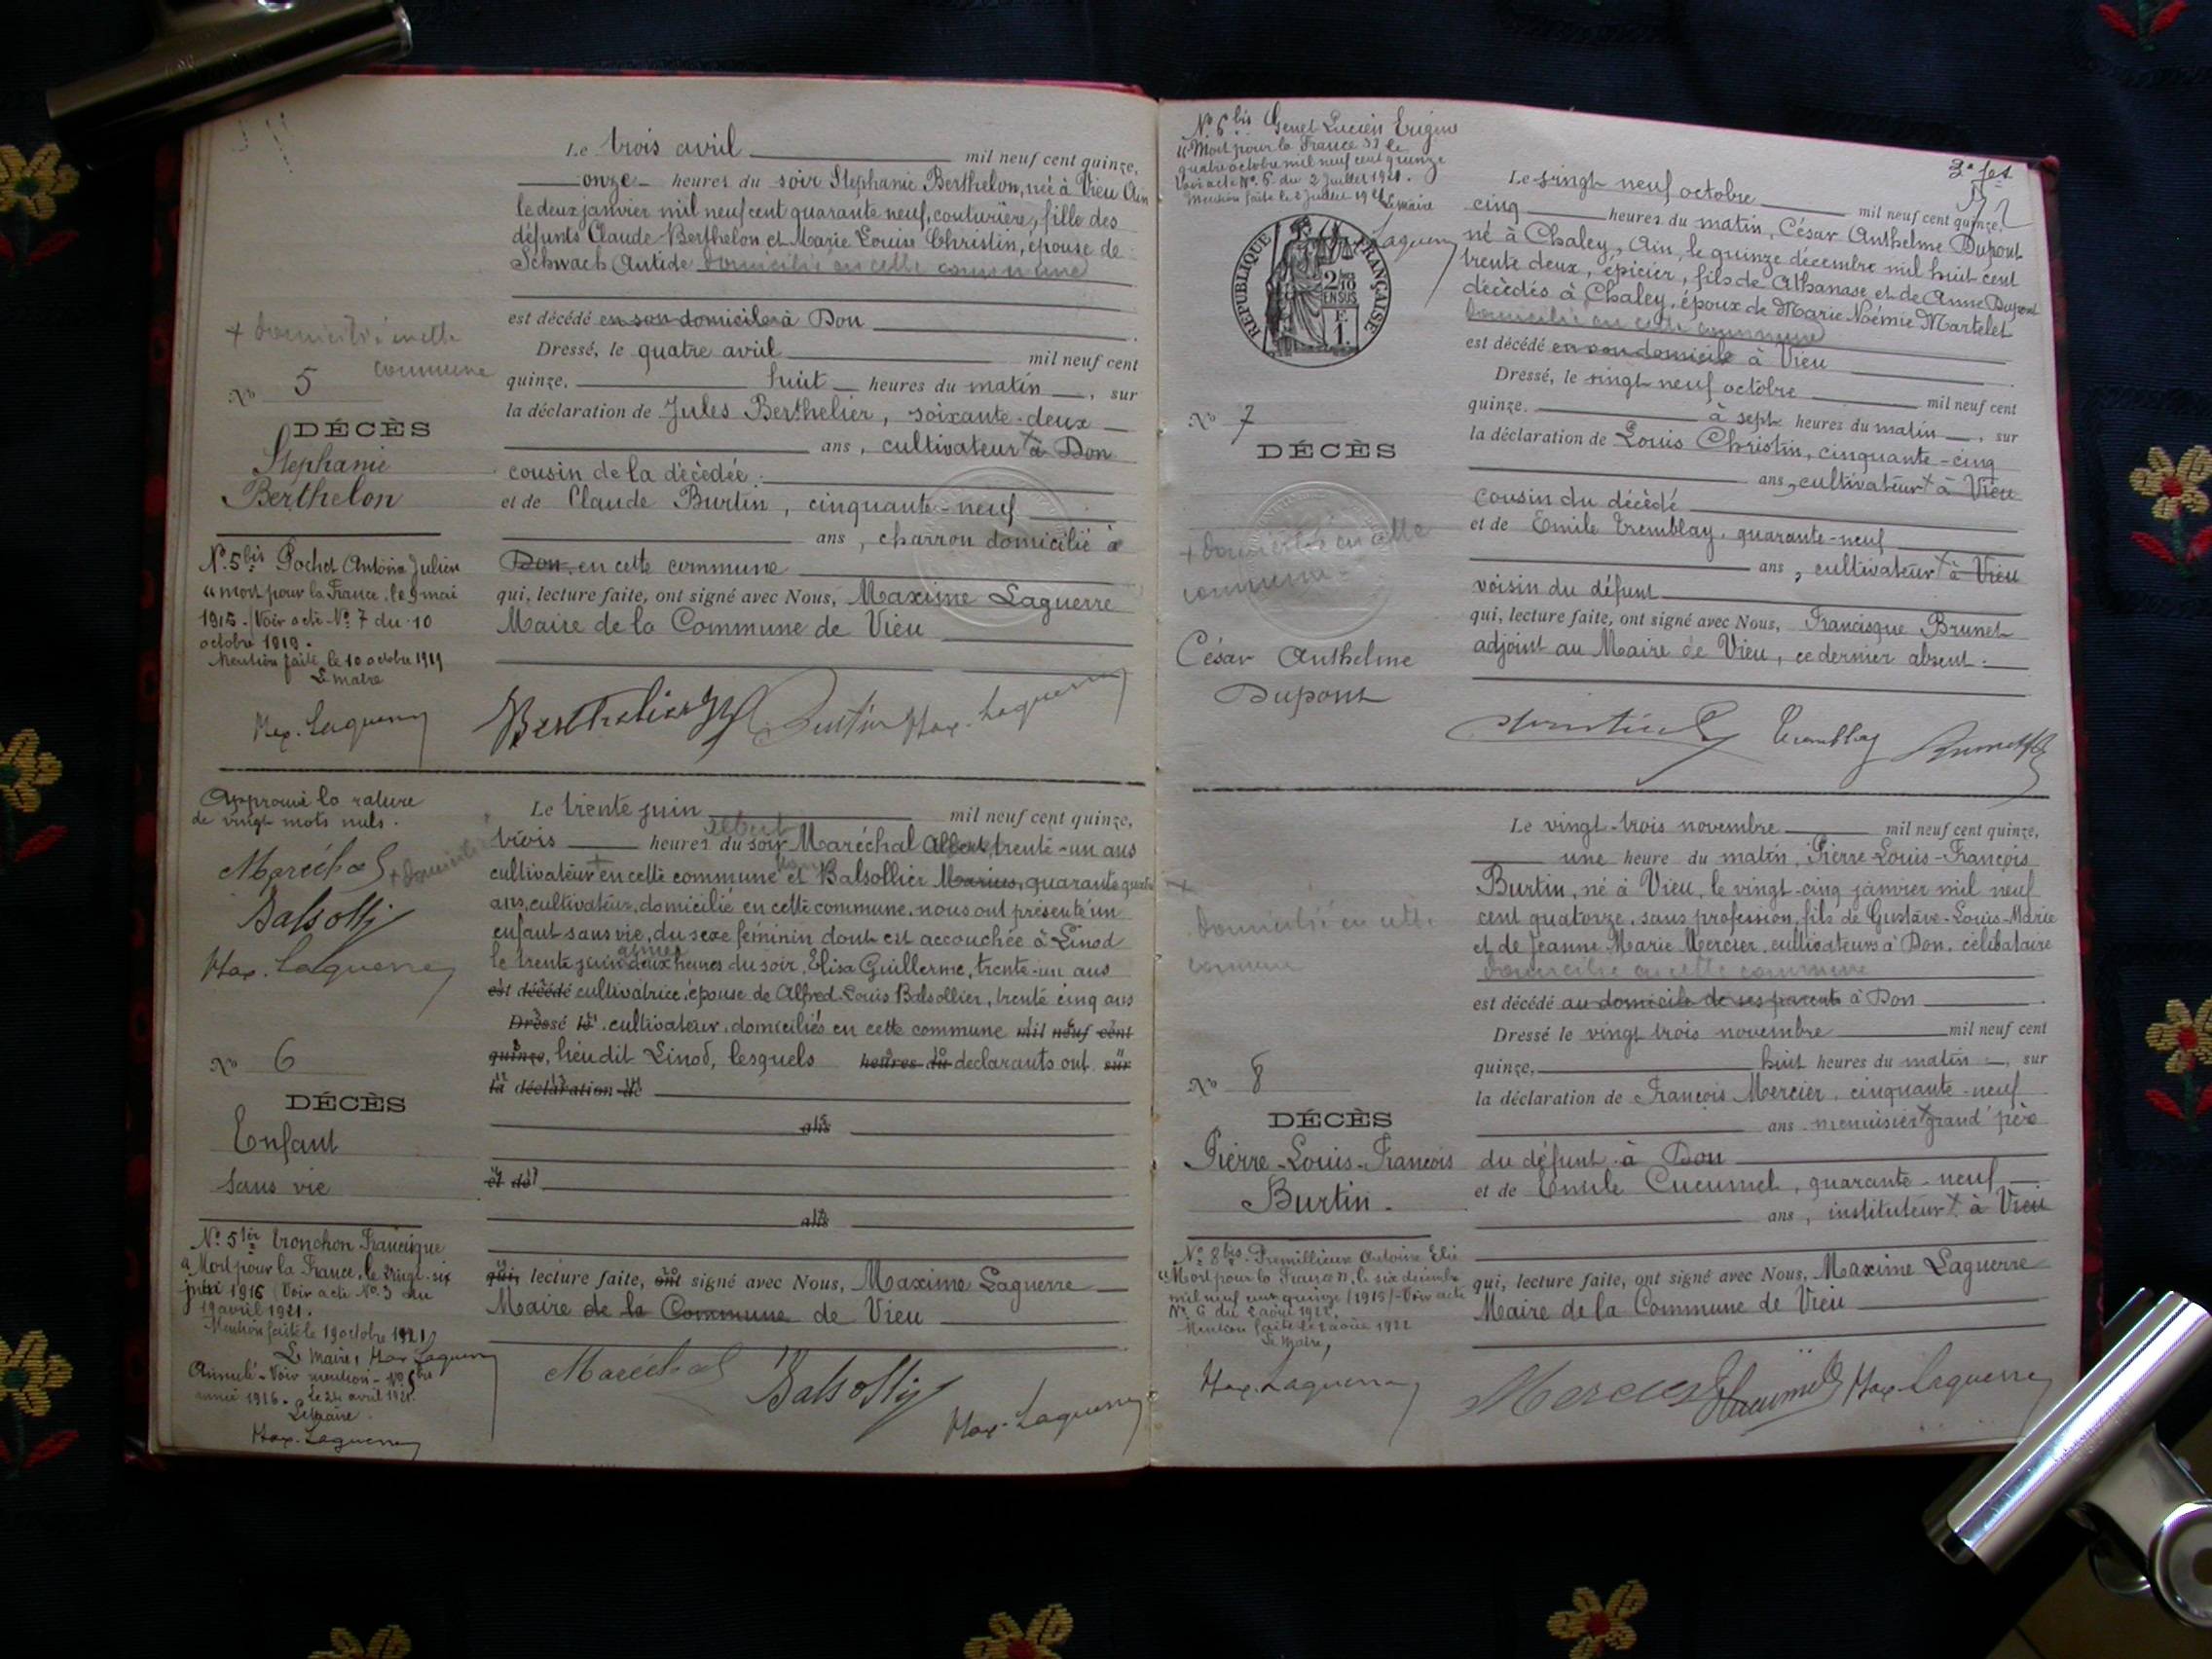 Le trois avril mil neuf cent quinze,
onze heures du soir Stephanie Berthelon, née à Vieu Ain
le deux janvier mil neuf cent quarante neuf, couturière, fille des
défunts Claude Berthelon et Marie Louise Christin, épouse de
Schwach Antide domiciliée en cette commune
est décédé en son domicile à Don
Dressé, le quatre avril mil neuf cent
quinze, huit heures du matin, sur
la déclaration de Jules Berthelier, soixante-deux
ans, cultivateur + à Don
cousin de la décédée.
et de Claude Burtin, cinquante-neuf
ans, charron domicilié à
Don, en cette commune
qui, lecture faite, ont signé avec Nous, Maxime Laguerre
Maire de la Commune de Vieu
Berthelier Burtin Max. Laguerre
+ domicilié en cette
commune
No 5
DÉCÈS
Stephanie
Berthelon
No. 5 bis Pochet Antoine Julien
"mort pour la France", le 9 mai
1915. (Voir acte No. 7 du 10
octobre 1919.
Mention faite le 10 octobre 1919
Le maire
Max. Laguerre
Approuvé la rature
de vingt mots nuls.
Maréchal
+ domicilié
Balsolli
Max. Laguerre
No 6
DÉCÈS
Enfant
Sans vie
No. 5 ter Tronchon Francisque
"Mort pour la France, le vingt-six
juin 1916 (Voir acte No. 3 du
19 avril 1921.
Mention faite le 19 octobre 1921
Le Maire, Max Laguerre
Annulé - Voir mention - No. 5 bis
année 1916. Le 24 avril 1921.
Le Maire.
Max. Laguerre
Le trente juin mil neuf cent quinze,
Albert
trois heures du soir Maréchal Albert, trente-un ans
cultivateur + en cette commune et Balsollier Marius, quarante quatre
ans, cultivateur, domicilié en cette commune, nous ont présenté un
enfant sans vie, du sexe féminin dont est accouchée à Linod
le trente juin deux heures du soir, Elisa Guillerme, trente-un ans
est décédé cultivatrice, épouse de Alfred-Louis Balsollier, trente cinq ans
Dressé le cultivateur, domiciliés en cette commune mil neuf cent
quinze, lieu dit Linod, lesquels heures du declarants ont sur
la déclaration de
ans
et de
ans
qui, lecture faite, ont signé avec Nous, Maxime Laguerre
Maire de la Commune de Vieu
Maréchal Balsolli Max. Laguerre
No. 6 bis Genet Lucien Eugène
"Mort pour la France" le
quatre octobre mil neuf cent quinze
Voir acte No. 5 du 2 Juillet 1921.
Mention faite le 2 Juillet 1921 Le Maire
Laguerre
REPUBLIQUE FRANÇAISE
2/10
EN SUS
F.
1.
3e fet
Le vingt neuf octobre mil neuf cent quinze,
cinq heures du matin, César Anthelme Dupont
né à Chaley, Ain, le quinze décembre mil huit cent
trente deux, épicier, fils de Athanase et de Anne Dupont
décédés à Chaley, époux de Marie Noémie Martelet
domicilié en cette commune
est décédé en son domicile à Vieu
Dressé, le vingt neuf octobre mil neuf cent
quinze. à sept heures du matin, sur
la déclaration de Louis Christin, cinquante-cinq
ans, cultivateur + à Vieu
cousin du décédé
et de Emile Tremblay, quarante-neuf
ans, cultivateur + à Vieu
voisin du défunt
qui, lecture faite, ont signé avec Nous, Francisque Brunet
adjoint au Maire de Vieu, ce dernier absent.
Christin Tremblay Brunet
No 7
DÉCÈS
+ domicilié en cette
commune
César Anthelme
Dupont
Le vingt-trois novembre mil neuf cent quinze,
une heure du matin, Pierre-Louis-François
Burtin, né à Vieu, le vingt-cinq janvier mil neuf
cent quatorze, sans profession, fils de Gustave-Louis-Marie
et de Jeanne Marie Mercier, cultivateurs à Don, célibataire
domicilié en cette commune
est décédé au domicile de ses parents à Don
Dressé le vingt trois novembre mil neuf cent
quinze, huit heures du matin, sur
la déclaration de François Mercier, cinquante-neuf
ans menuisier + grand'père
du défunt à Don
et de Emile Cucumel, quarante-neuf
ans, instituteur + à Vieu
qui, lecture faite, ont signé avec Nous, Maxime Laguerre
Maire de la Commune de Vieu
Mercier Cucumel Max Laguerre
+
domicilié en cette
commune
No 8
DÉCÈS
Pierre-Louis-François
Burtin.
No. 8 bis. Premillieux Antoine Elie
"Mort pour la France", le six décembre
mil neuf cent quinze (1915) - Voir acte
No. 6 du 2 août 1922.
Mention faite le 2 août 1922
Le Maire,
Max. Laguerre